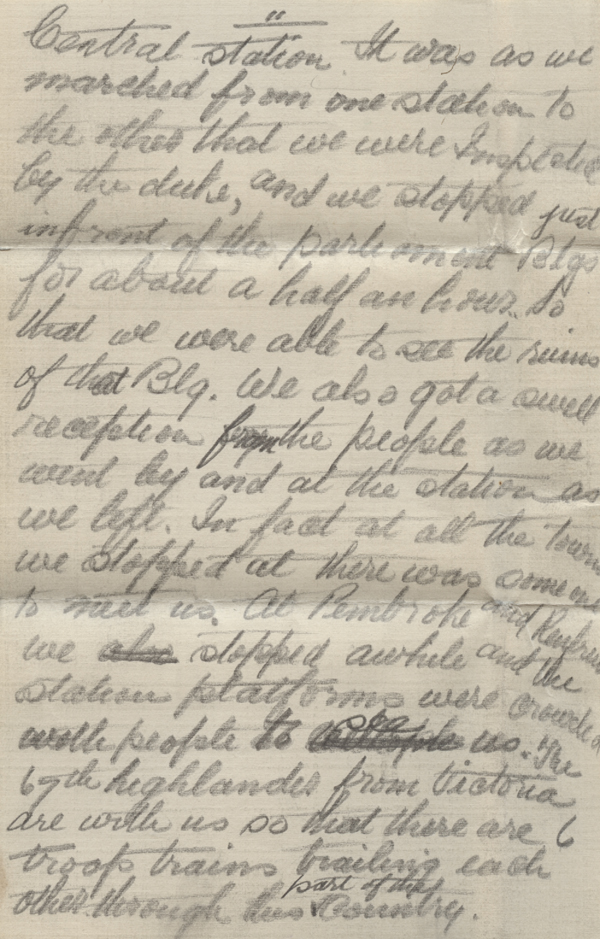 "
Central station It was as we
marched from one station to
the other that we were Inspected
by the duke, and we stopped just
infront of the parliament Blgs
for about a half an hour. So
that we were able to see the ruins
of that Blg. We also got a swell
reception from the people as we
went by and at the station as
we left. In fact at all the towns
we stopped at there was someone
to meet us. At Pembroke and Renfrew
we also stopped awhile and the
station platforms were crowded
with people to see us. The
67th highlanders from Victoria
are with us so that there are 6
troop trains trailing each
other through this part of the Country.